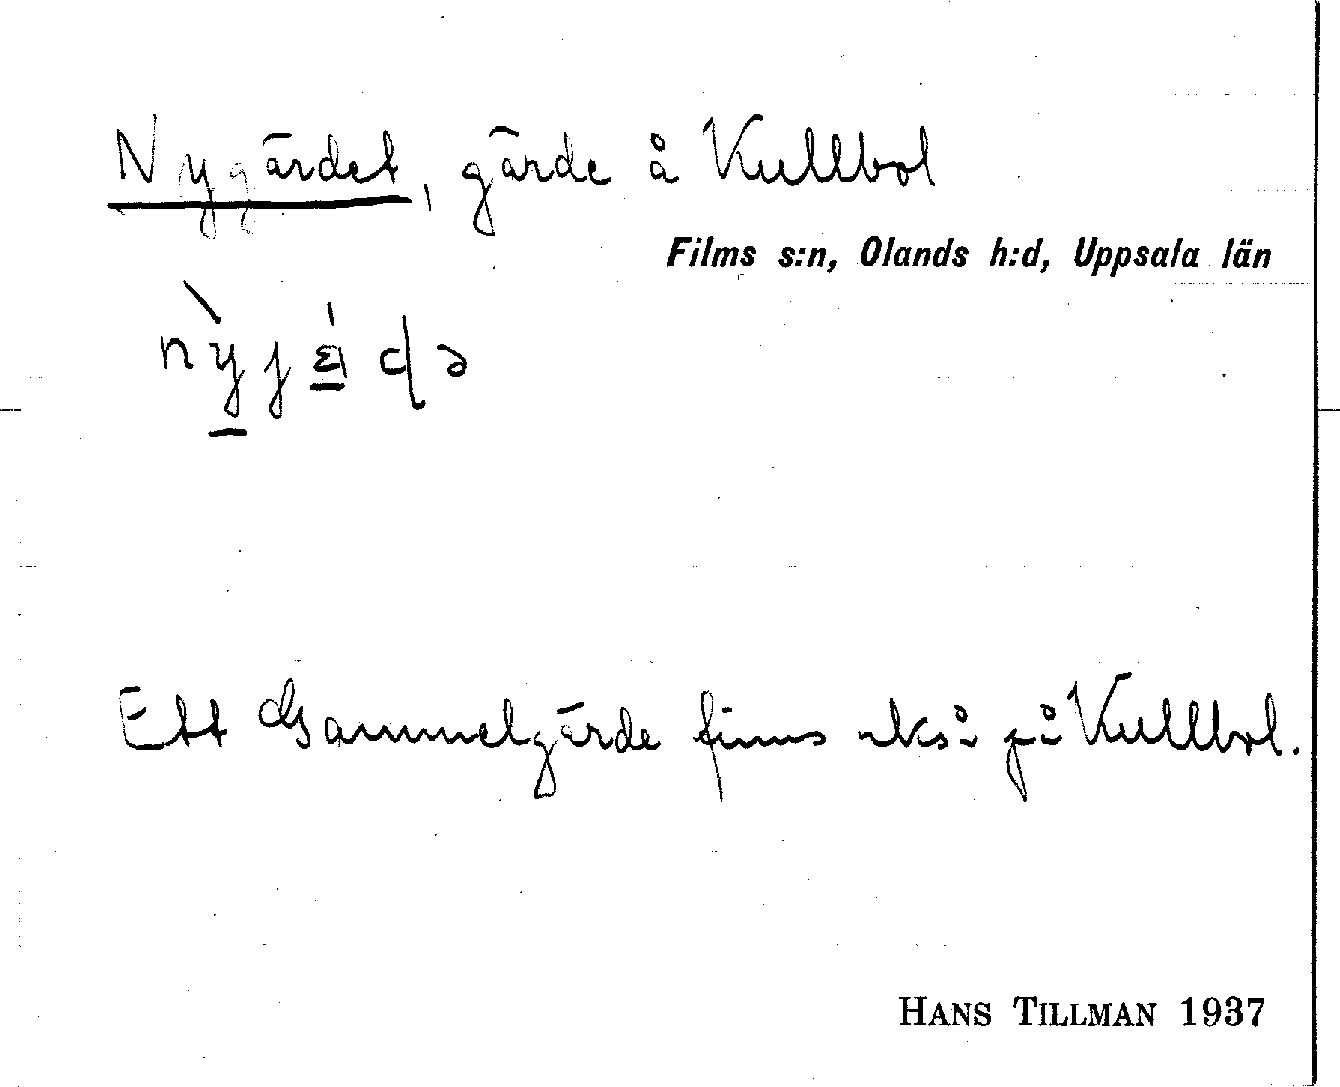 Nygärdet, gärde å Kullbol
Films s:n, Olands h:d, Uppsala län
Ett Gammelgärde finns också på Kullbol.
HANS TILLMAN 1937